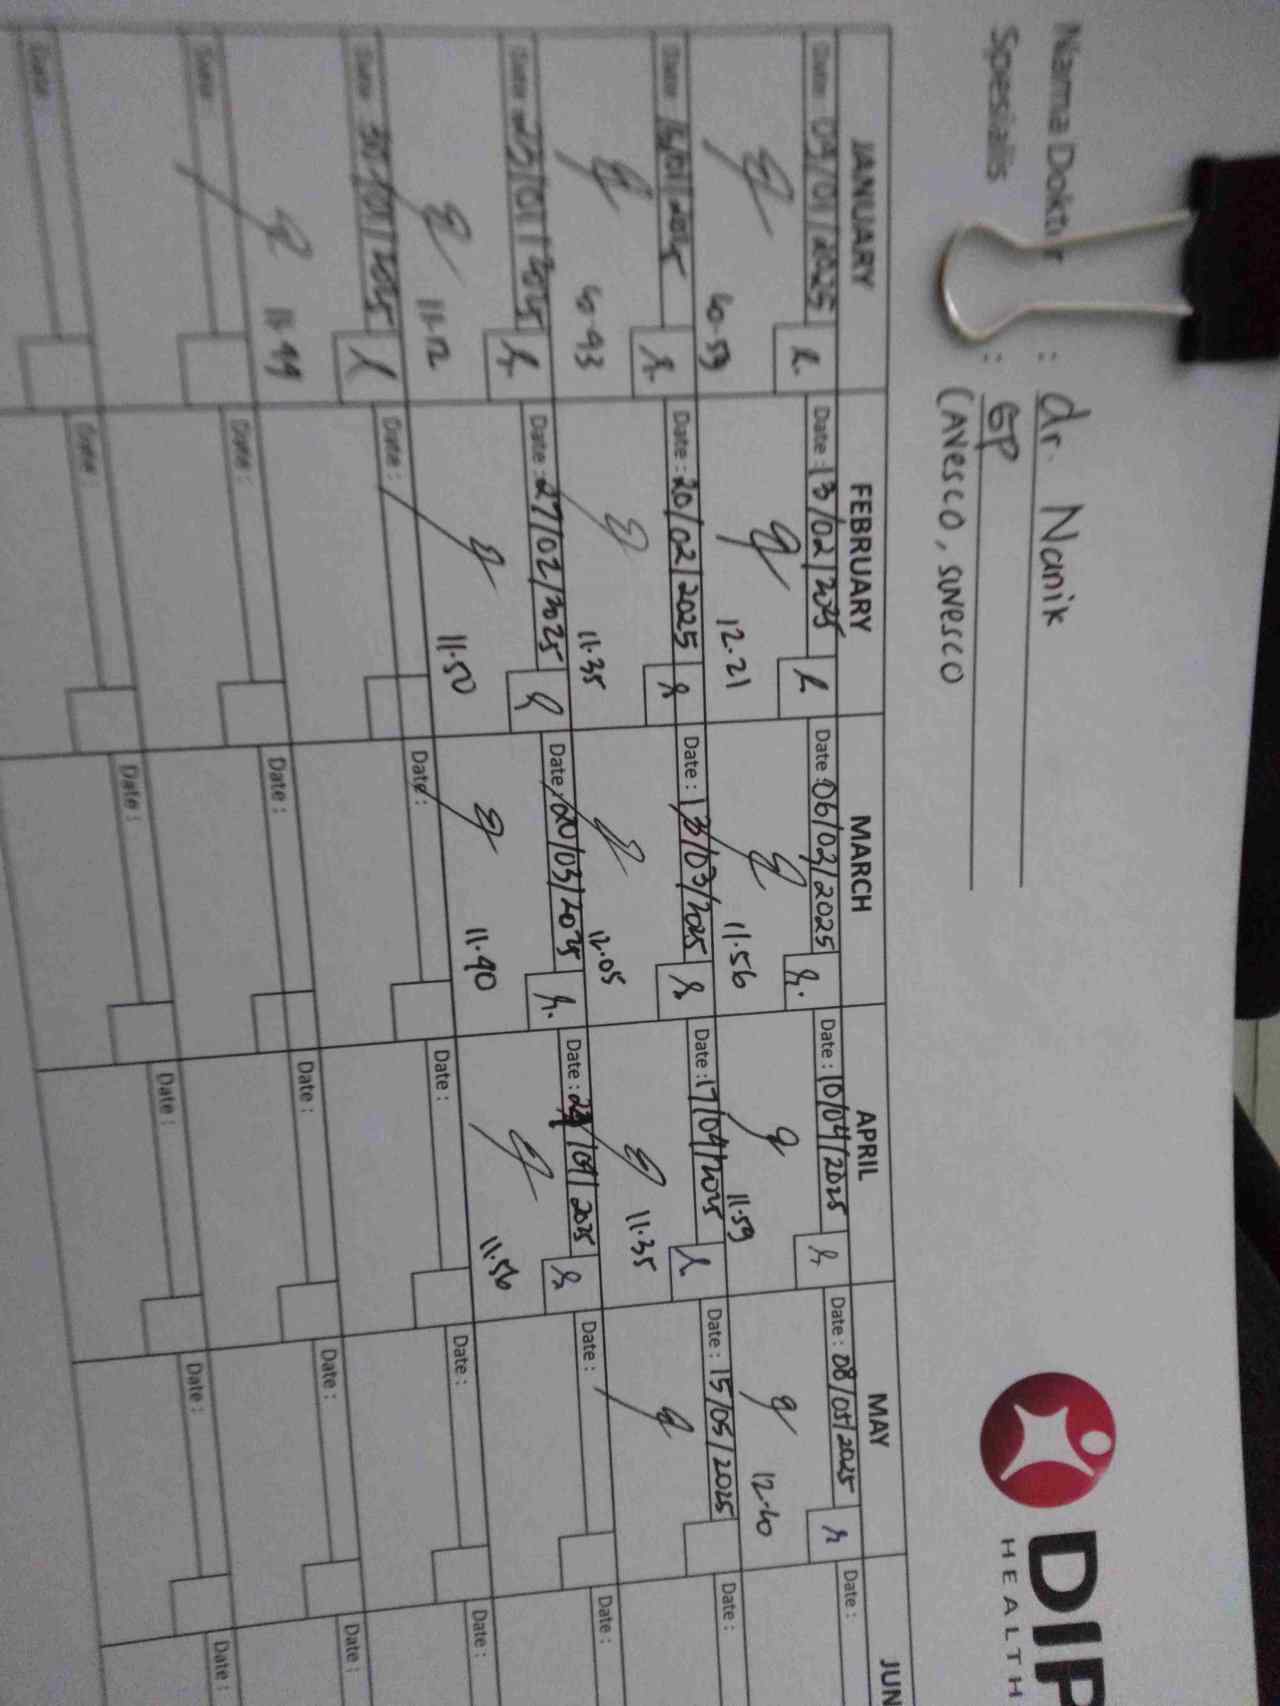 Nama Dokter : dr. Nanik
Spesialis : GP
(AVESCO, SUVESCO
DIP
HEALTH
JANUARY FEBRUARY MARCH APRIL MAY JUN
Date : 09/01/2025 Date : 13/02/2025 Date : 06/03/2025 Date : 10/04/2025 Date : 08/05/2025 Date :
10.59 12.21 11.56 11.59 12.10
Date : 16/01/2025 Date : 20/02/2025 Date : 13/03/2025 Date : 17/04/2025 Date : 15/05/2025 Date :
10.43 11.35 12.05 11.35
Date : 23/01/2025 Date : 27/02/2025 Date : 20/03/2025 Date : 24/04/2025 Date : Date :
11.12 11.50 11.40 11.56
Date : 30/01/2025 Date : Date : Date : Date : Date :
11.49
Date : Date : Date : Date : Date : Date :
Date : Date : Date : Date : Date : Date :